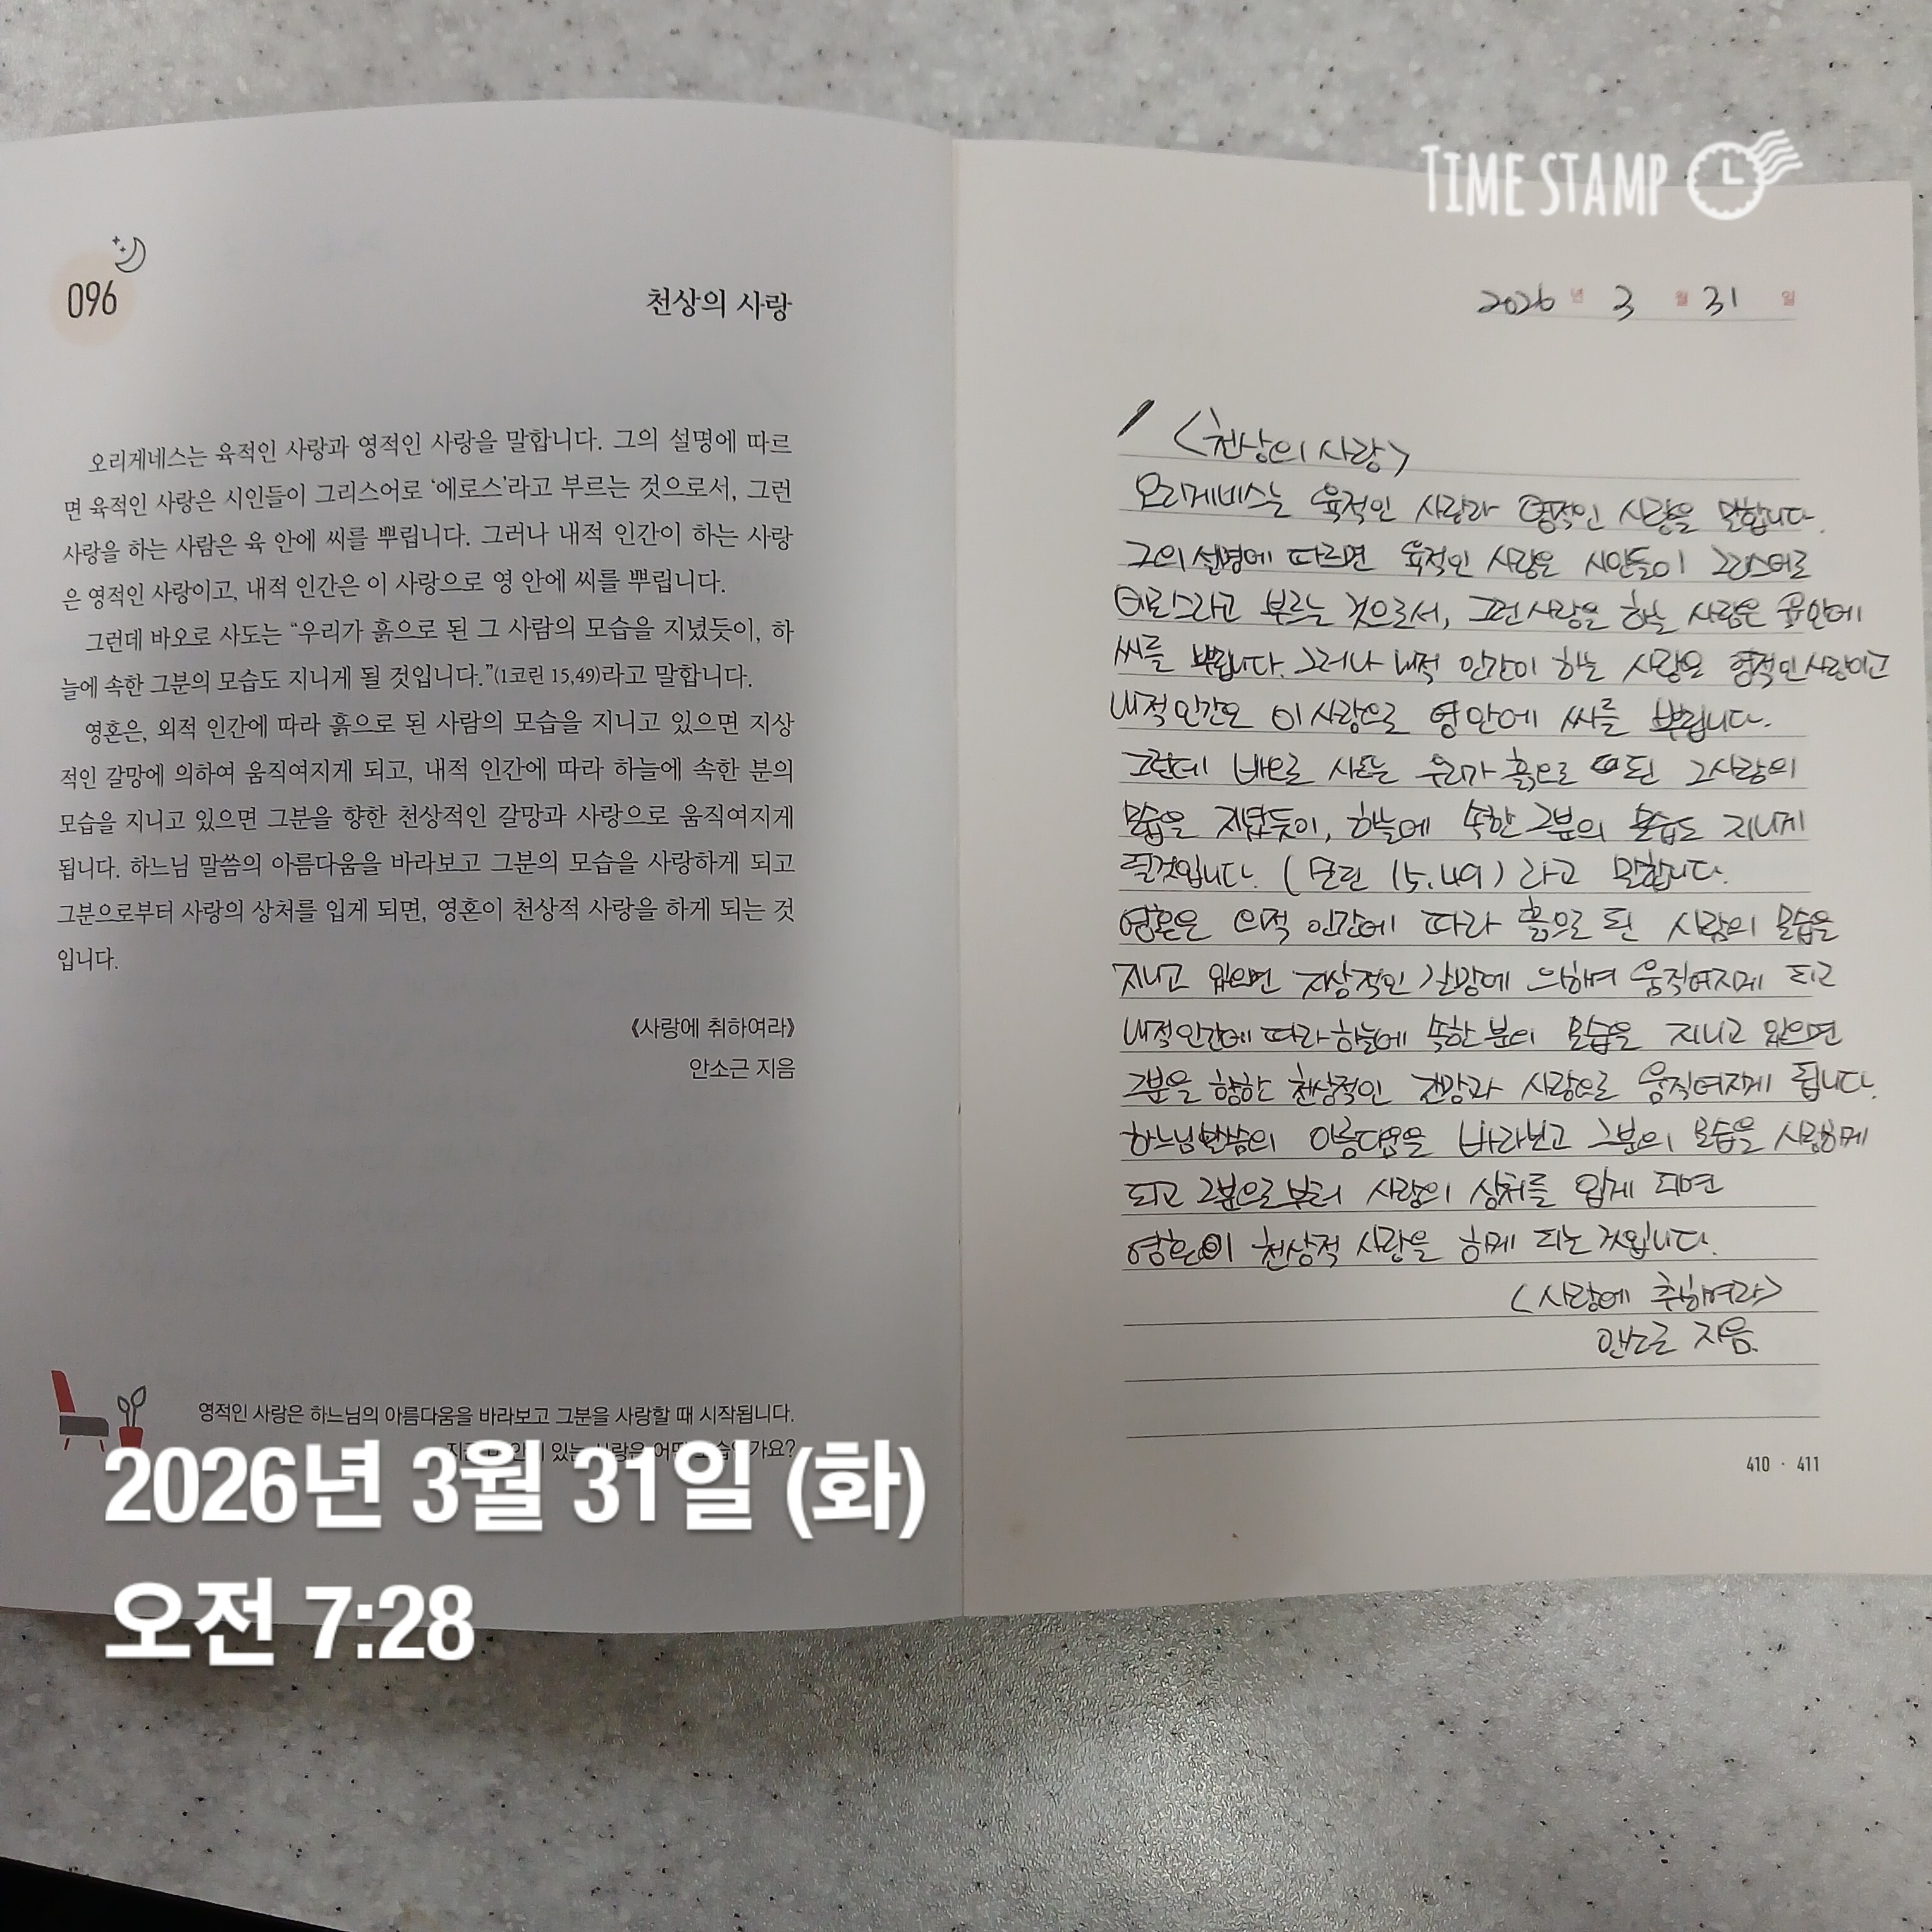 TIME STAMP
096
천상의 사랑
오리게네스는 육적인 사랑과 영적인 사랑을 말합니다. 그의 설명에 따르
면 육적인 사랑은 시인들이 그리스어로 ‘에로스’라고 부르는 것으로서, 그런
사랑을 하는 사람은 육 안에 씨를 뿌립니다. 그러나 내적 인간이 하는 사랑
은 영적인 사랑이고, 내적 인간은 이 사랑으로 영 안에 씨를 뿌립니다.
그런데 바오로 사도는 “우리가 흙으로 된 그 사람의 모습을 지녔듯이, 하
늘에 속한 그분의 모습도 지니게 될 것입니다.”(1코린 15,49)라고 말합니다.
영혼은, 외적 인간에 따라 흙으로 된 사람의 모습을 지니고 있으면 지상
적인 갈망에 의하여 움직여지게 되고, 내적 인간에 따라 하늘에 속한 분의
모습을 지니고 있으면 그분을 향한 천상적인 갈망과 사랑으로 움직여지게
됩니다. 하느님 말씀의 아름다움을 바라보고 그분의 모습을 사랑하게 되고
그분으로부터 사랑의 상처를 입게 되면, 영혼이 천상적 사랑을 하게 되는 것
입니다.
《사랑에 취하여라》
안소근 지음
영적인 사랑은 하느님의 아름다움을 바라보고 그분을 사랑할 때 시작됩니다.
있는 사랑은
2026년 3월 31일 (화)
오전 7:28
2026 년 3 월 31 일
<천상의 사랑>
오리게네스는 육적인 사랑과 영적인 사랑을 말합니다.
그의 설명에 따르면 육적인 사랑은 시인들이 그리스어로
에로스라고 부르는 것으로서, 그런 사랑을 하는 사람은 육안에
씨를 뿌립니다. 그러나 내적 인간이 하는 사랑은 영적인 사랑이고
내적 인간은 이 사랑으로 영 안에 씨를 뿌립니다.
그런데 바오로 사도는 우리가 흙으로 된 그 사람의
모습을 지녔듯이, 하늘에 속한 그분의 모습도 지니게
될것입니다. ( 15.49) 라고 말합니다.
영혼은 외적 인간에 따라 흙으로 된 사람의 모습을
지니고 있으면 지상적인 갈망에 의하여 움직여지게 되고
내적인간에 따라 하늘에 속한 분의 모습을 지니고 있으면
그분을 향한 천상적인 사랑으로 움직여지게 됩니다.
하느님 말씀의 아름다움을 바라보고 그분의 모습을 사랑하게
되고 그분으로부터 사랑의 상처를 입게 되면
영혼이 천상적 사랑을 하게 되는 것입니다.
<사랑에 취하여라>
지음.
410 · 411